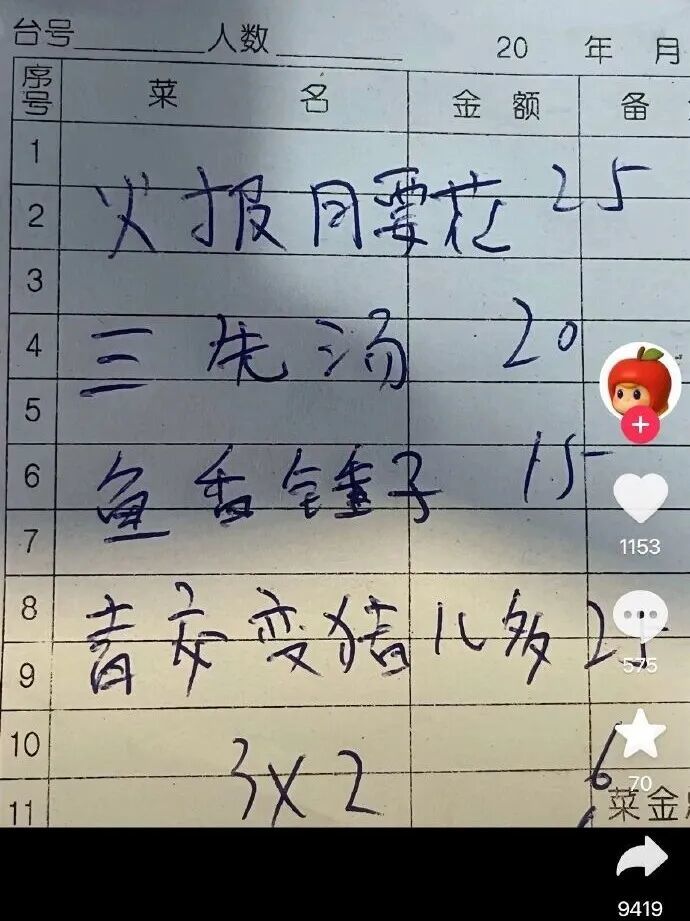 台号 人数 20 年 月
序号 菜名 金额 备
1
火报月要花 25
2
3
三先汤 20
4
5
鱼香锤子 15
6
7
8
青交变猪儿多 25
9
10
3X2 6
11
菜金
1153
575
70
9419